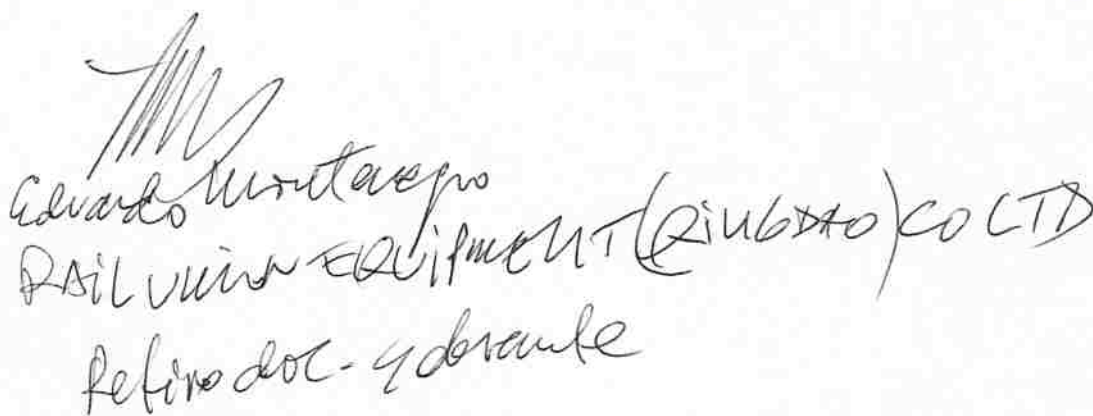 Eduardo Montenegro
RAIL UNION EQUIPMENT (QINGDAO) CO LTD
Retiro doc.